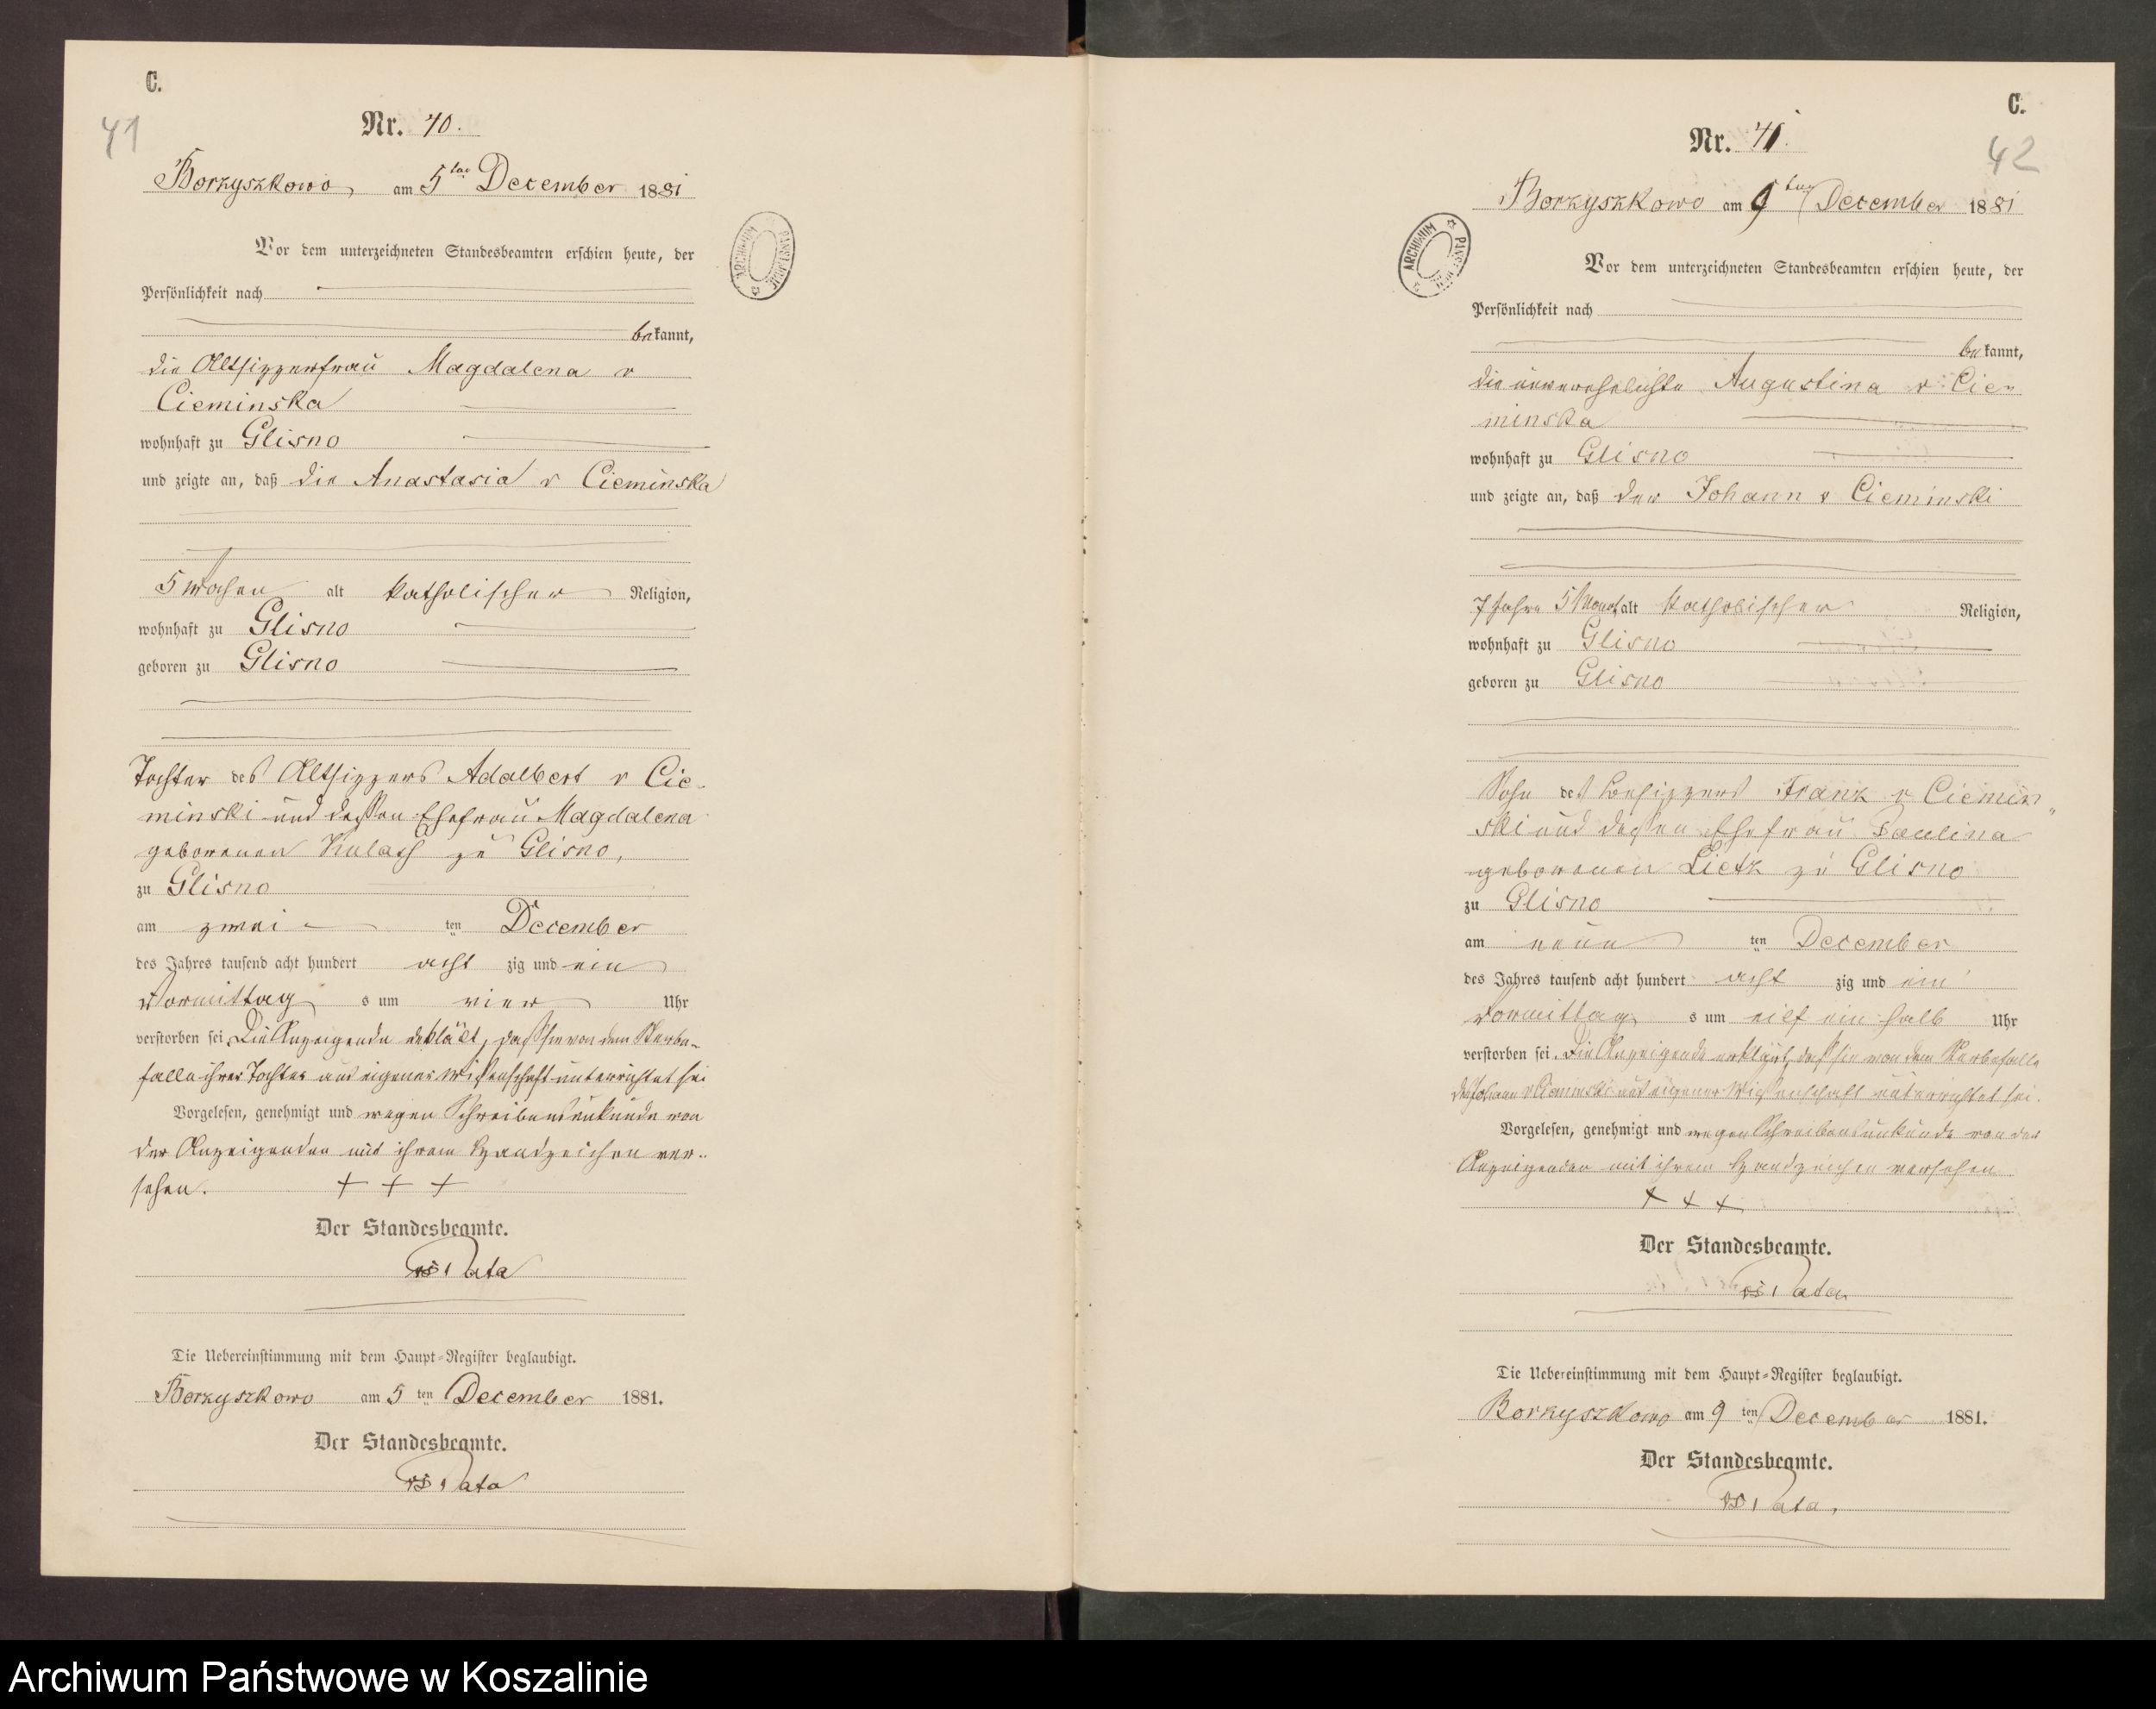 C.
41
Nr. 40.
Borzyszkowo, am 5ten December 1881
Vor dem unterzeichneten Standesbeamten erschien heute, der
Persönlichkeit nach
bekannt,
die Altsitzerfrau Magdalena v
Cieminska
wohnhaft zu Glisno
und zeigte an, daß die Anastasia v Cieminska
5 Wochen alt katholischer Religion,
wohnhaft zu Glisno
geboren zu Glisno
Tochter des Altsitzers Adalbert v Cie-
minski und dessen Ehefrau Magdalena
geborenen zu Glisno,
zu Glisno
am zwei ten December
des Jahres tausend acht hundert acht zig und ein
Vormittag s um vier Uhr
verstorben sei. Die Anzeigende erklärt, daß sie von dem Sterbe-
falle ihrer Tochter aus eigener Wissenschaft unterrichtet sei
Vorgelesen, genehmigt und wegen Schreibensunkunde von
der Anzeigenden mit ihrem Handzeichen ver-
sehen. + + +
Der Standesbeamte.
Pata
Die Uebereinstimmung mit dem Haupt-Register beglaubigt.
Borzyszkowo am 5 ten December 1881.
Der Standesbeamte.
Pata
ARCHIWUM PAŃSTWOWE
C.
42
Nr. 41.
Borzyszkowo am 9ten December 1881
Vor dem unterzeichneten Standesbeamten erschien heute, der
Persönlichkeit nach
bekannt,
die unverehelichte Augustina v Cie-
minska
wohnhaft zu Glisno
und zeigte an, daß der Johann v Cieminski
7 Jahre 5 Monat alt katholischer Religion,
wohnhaft zu Glisno
geboren zu Glisno
Sohn des Besitzers Franz v Ciemin-
ski und dessen Ehefrau Paulina
geborenen Lietz zu Glisno
zu Glisno
am neun ten December
des Jahres tausend acht hundert acht zig und ein
Vormittag s um eilf ein halb Uhr
verstorben sei. Die Anzeigende erklärt, daß sie von dem Sterbefalle
des Johann v Cieminski aus eigener Wissenschaft unterrichtet sei.
Vorgelesen, genehmigt und wegen Schreibensunkunde von der
Anzeigenden mit ihrem Handzeichen versehen
+ + +
Der Standesbeamte.
Pata
Die Uebereinstimmung mit dem Haupt-Register beglaubigt.
Borzyszkowo am 9 ten December 1881.
Der Standesbeamte.
Pata.
ARCHIWUM PAŃSTWOWE
Archiwum Państwowe w Koszalinie